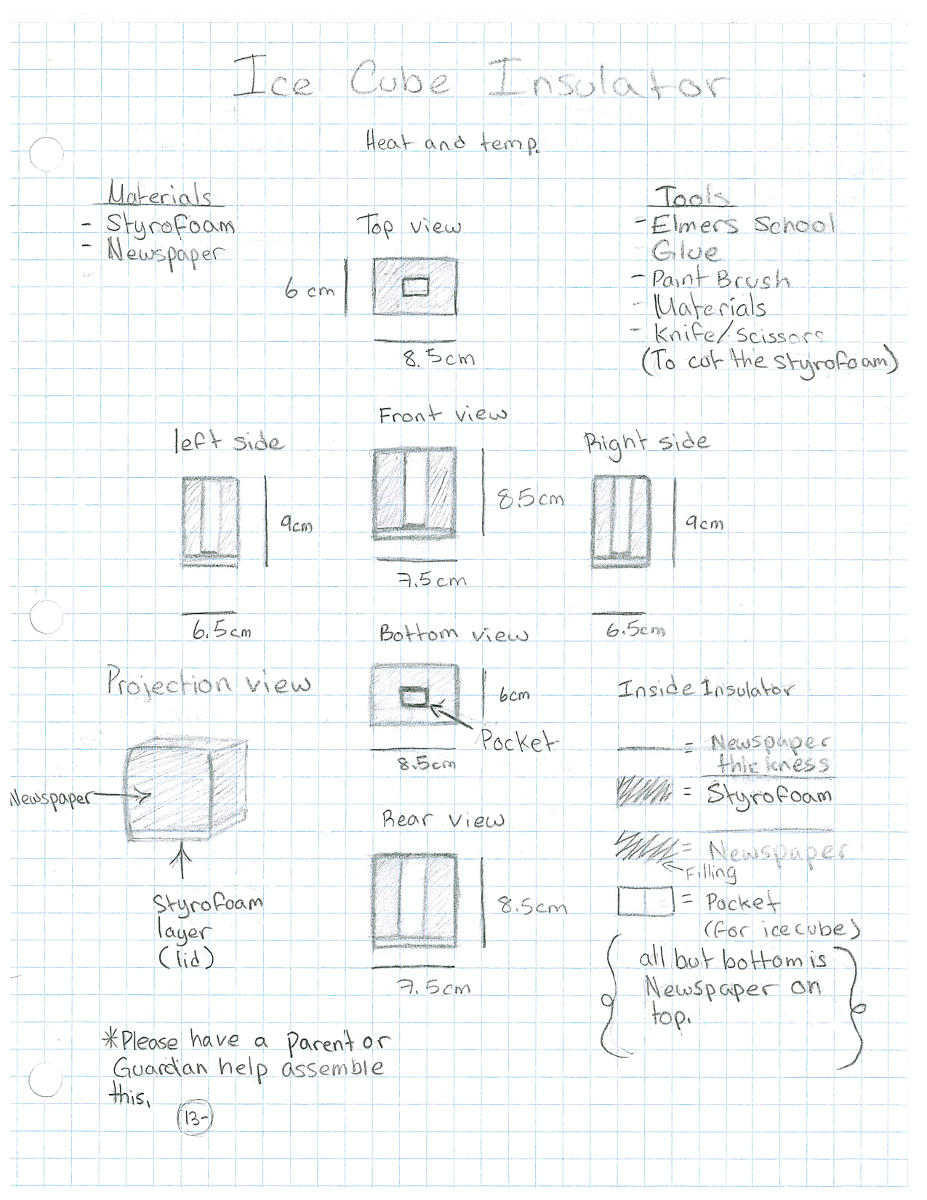 Ice Cube Insulator
Heat and temp.
Materials
- Styrofoam
- Newspaper
Top view
6 cm
8.5cm
Tools
- Elmers School
Glue
- Paint Brush
- Materials
- Knife/Scissors
(To cut the styrofoam)
left side
9cm
6.5cm
Front view
8.5cm
7.5cm
Right side
9cm
6.5cm
Bottom view
6cm
Pocket
8.5cm
Projection view
Newspaper
Styrofoam
layer
(lid)
Rear view
8.5cm
7.5cm
Inside Insulator
= Newspaper
thickness
= Styrofoam
= Newspaper
Filling
= Pocket
(For icecube)
all but bottom is
Newspaper on
top.
*Please have a Parent or
Guardian help assemble
this.
13-